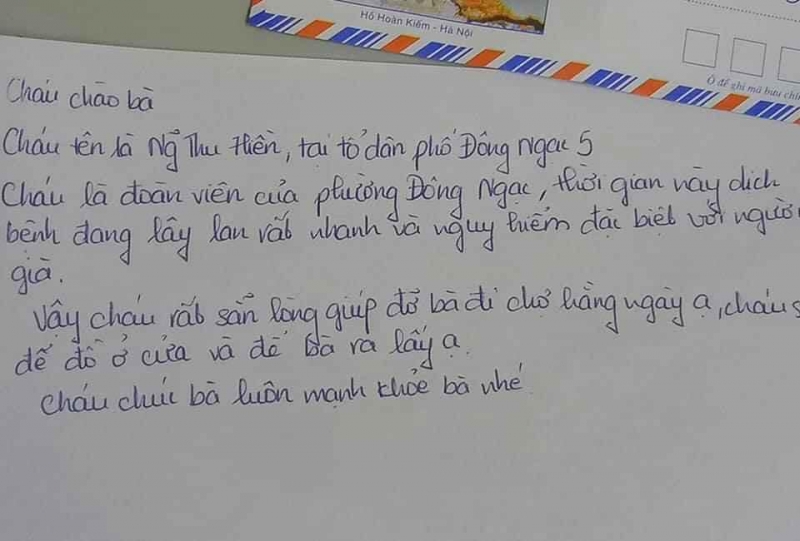 Hồ Hoàn Kiếm - Hà Nội
Ô để ghi mã bưu chí
Cháu chào bà
Cháu tên là Ng̃ Thu Hiền, tại tổ dân phố Đông Ngạc 5
Cháu là đoàn viên của phường Đông Ngạc, thời gian này dịch
bệnh đang lây lan rất nhanh và nguy hiểm đặc biệt với người
già.
Vậy cháu rất sẵn lòng giúp đỡ bà đi chợ hằng ngày ạ, cháu s
để đồ ở cửa và để bà ra lấy ạ.
Cháu chúc bà luôn mạnh khỏe bà nhé